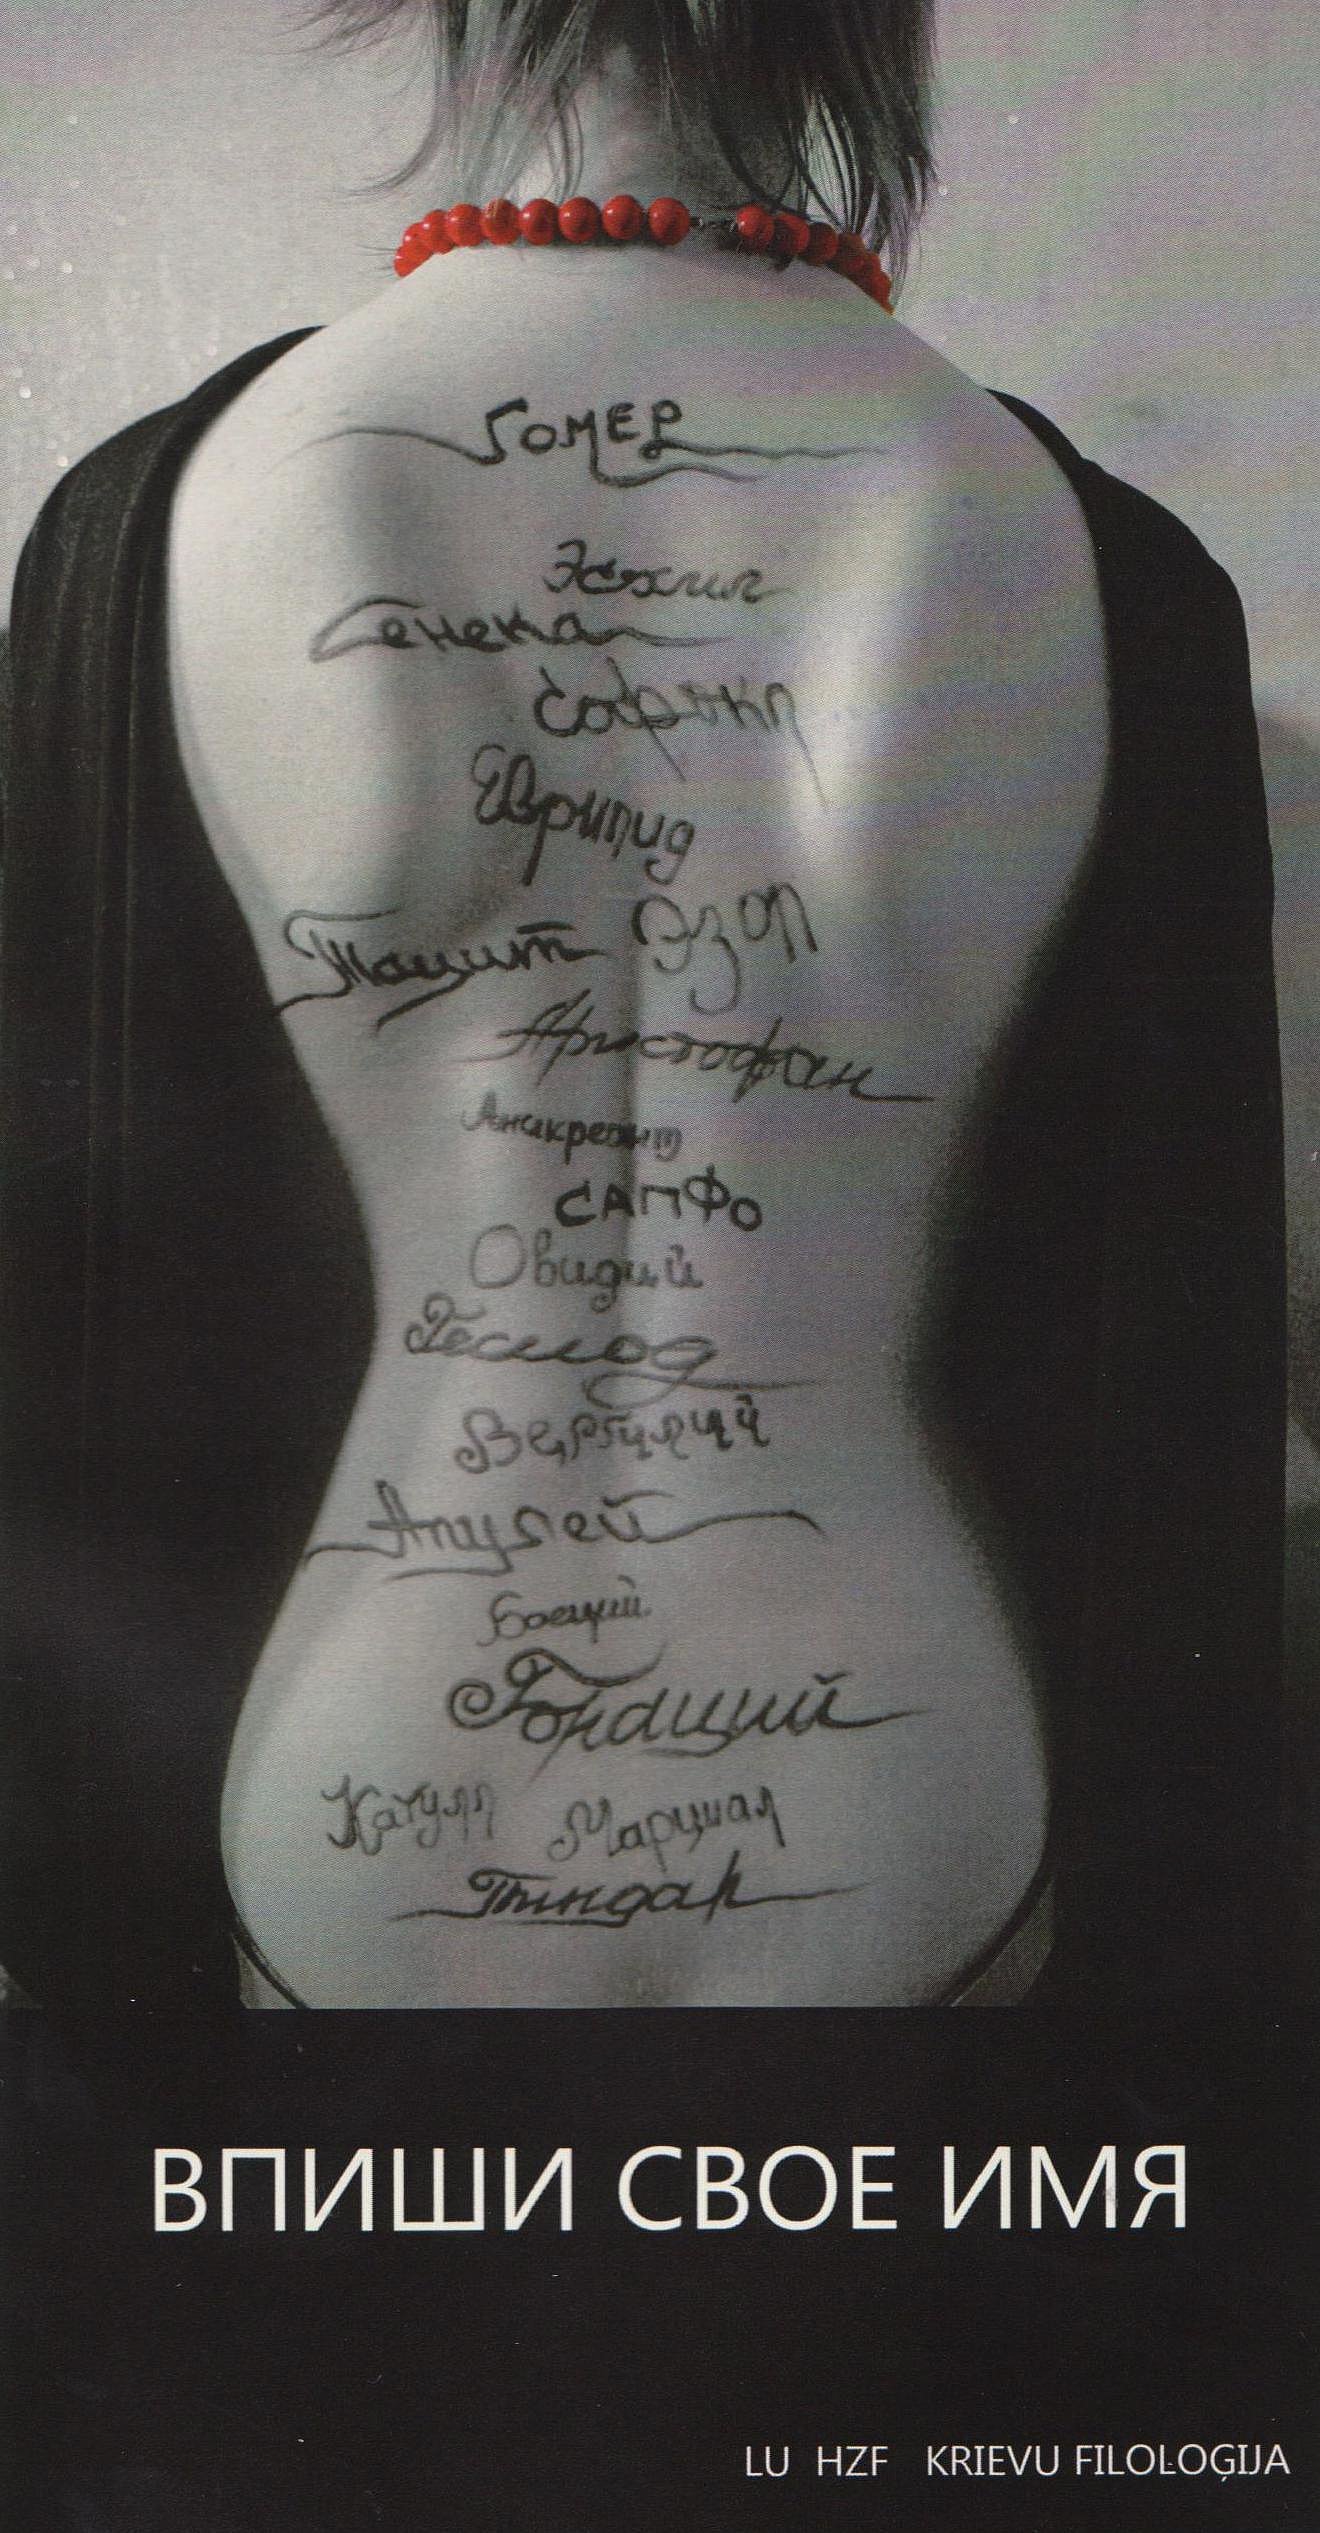 Гомер
Эсхил
Сенека
Софокл
Еврипид
Тацит Эзоп
Аристофан
Анакреонт
САПФО
Овидий
Гесиод
Вергилий
Апулей
Боеций
Гораций
Катулл Марциал
Пиндар
ВПИШИ СВОЕ ИМЯ
LU HZF KRIEVU FILOLOĢIJA